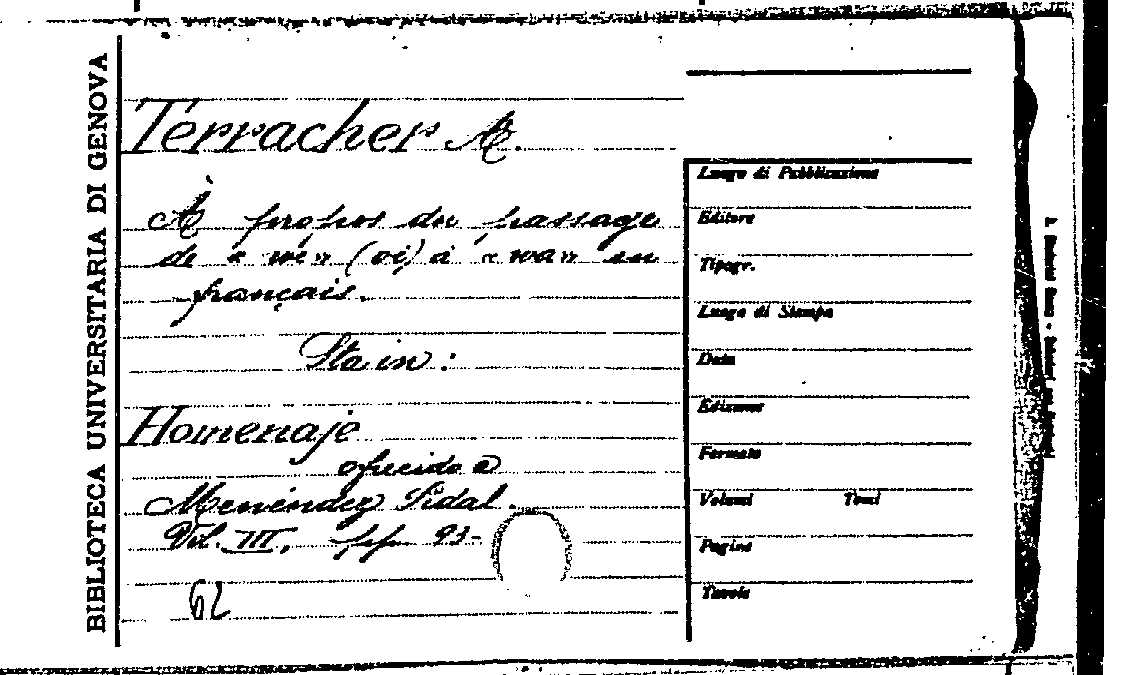 BIBLIOTECA UNIVERSITARIA DI GENOVA
Terracher A.
À propos du passage
de « wè » (oi) à « wa » en
français.
Sta in:
Homenaje
ofrecido a
Menéndez Pidal.
Vol. III, pp. 93-
62
Luogo di Pubblicazione
Editore
Tipogr.
Luogo di Stampa
Data
Edizione
Formato
Volumi Tomi
Pagine
Tavole